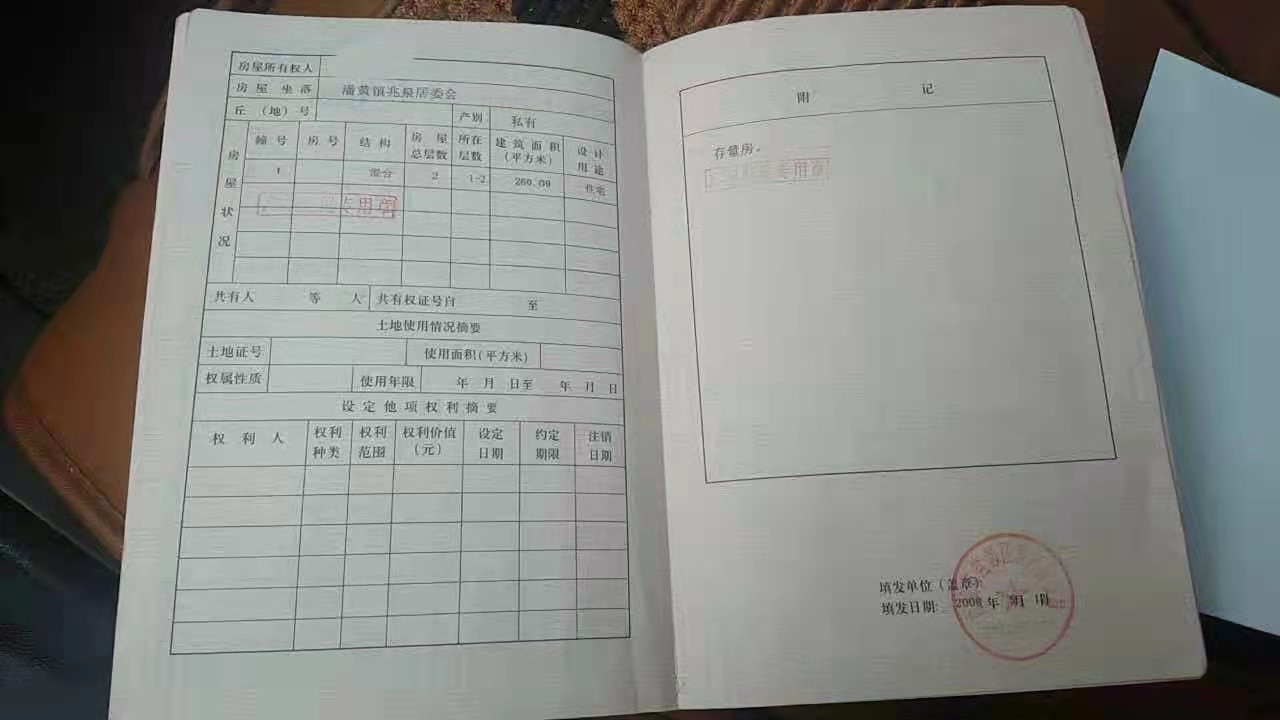 房屋所有权人
房屋坐落 潘黄镇兆泉居委会
丘（地）号 产别 私有
房屋状况
幢号 房号 结构 房屋总层数 所在层数 建筑面积（平方米） 设计用途
1 混合 2 1-2 260.09 住宅
专用章
共有人 等 人 共有权证号自 至
土地使用情况摘要
土地证号 使用面积(平方米)
权属性质 使用年限 年 月 日至 年 月 日
设定他项权利摘要
权利人 权利种类 权利范围 权利价值（元） 设定日期 约定期限 注销日期
附 记
存量房。
专用章
填发单位（盖章）：
填发日期： 2008 年 月 日